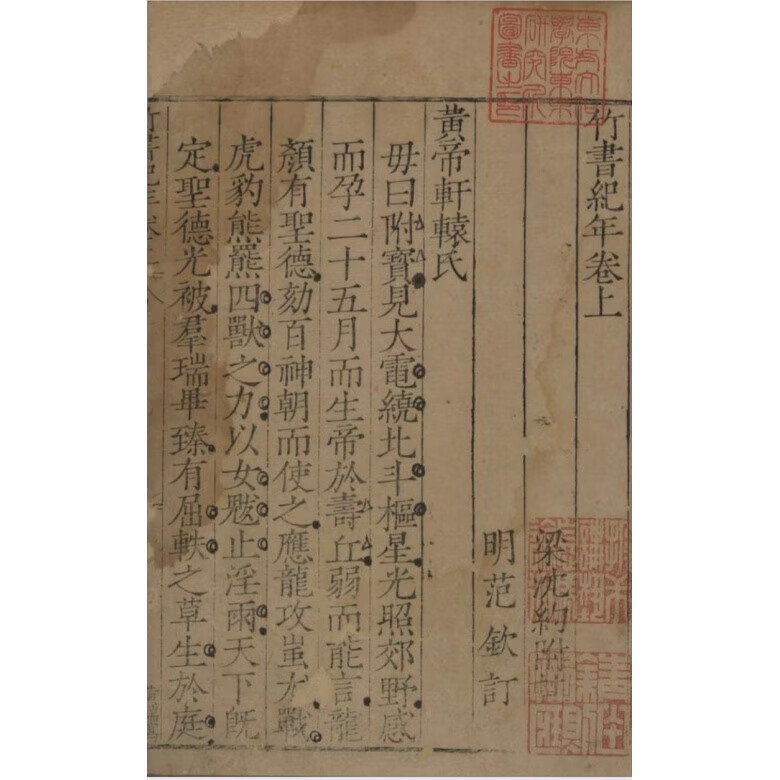 竹書紀年卷上
梁沈約附註
明范欽訂
黃帝軒轅氏
毋曰附寶見大電繞北斗樞星光照郊野感
而孕二十五月而生帝於壽丘弱而能言龍
顏有聖德劾百神朝而使之應龍攻蚩尤戰
虎豹熊羆四獸之力以女魃止淫雨天下旣
定聖德光被羣瑞畢臻有屈軼之草生於庭